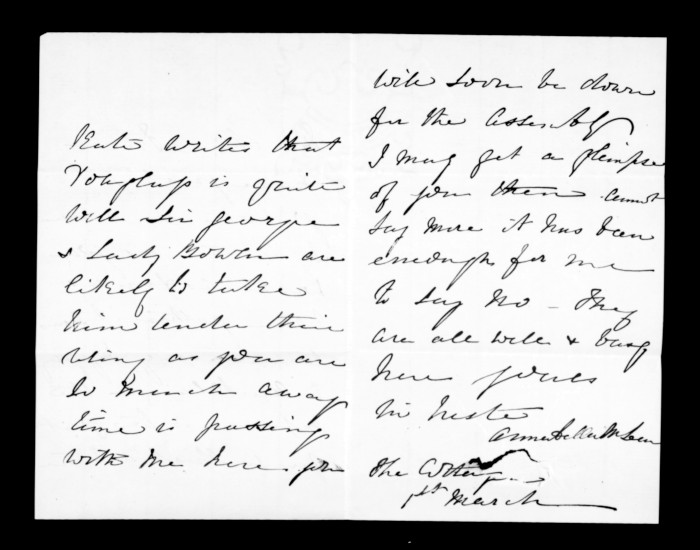 Kate writes that
Douglas is quite
well Sir George
& Lady Bowen are
likely to take
him under their
wing as you are
so much away
time is passing
with me here you
will soon be down
for the Assembly
I may get a glimpse
of you then cannot
say more it has been
enough for me
to say no - They
are all well & busy
here yours
in haste
Annabella McLean
The Cottage
1st March